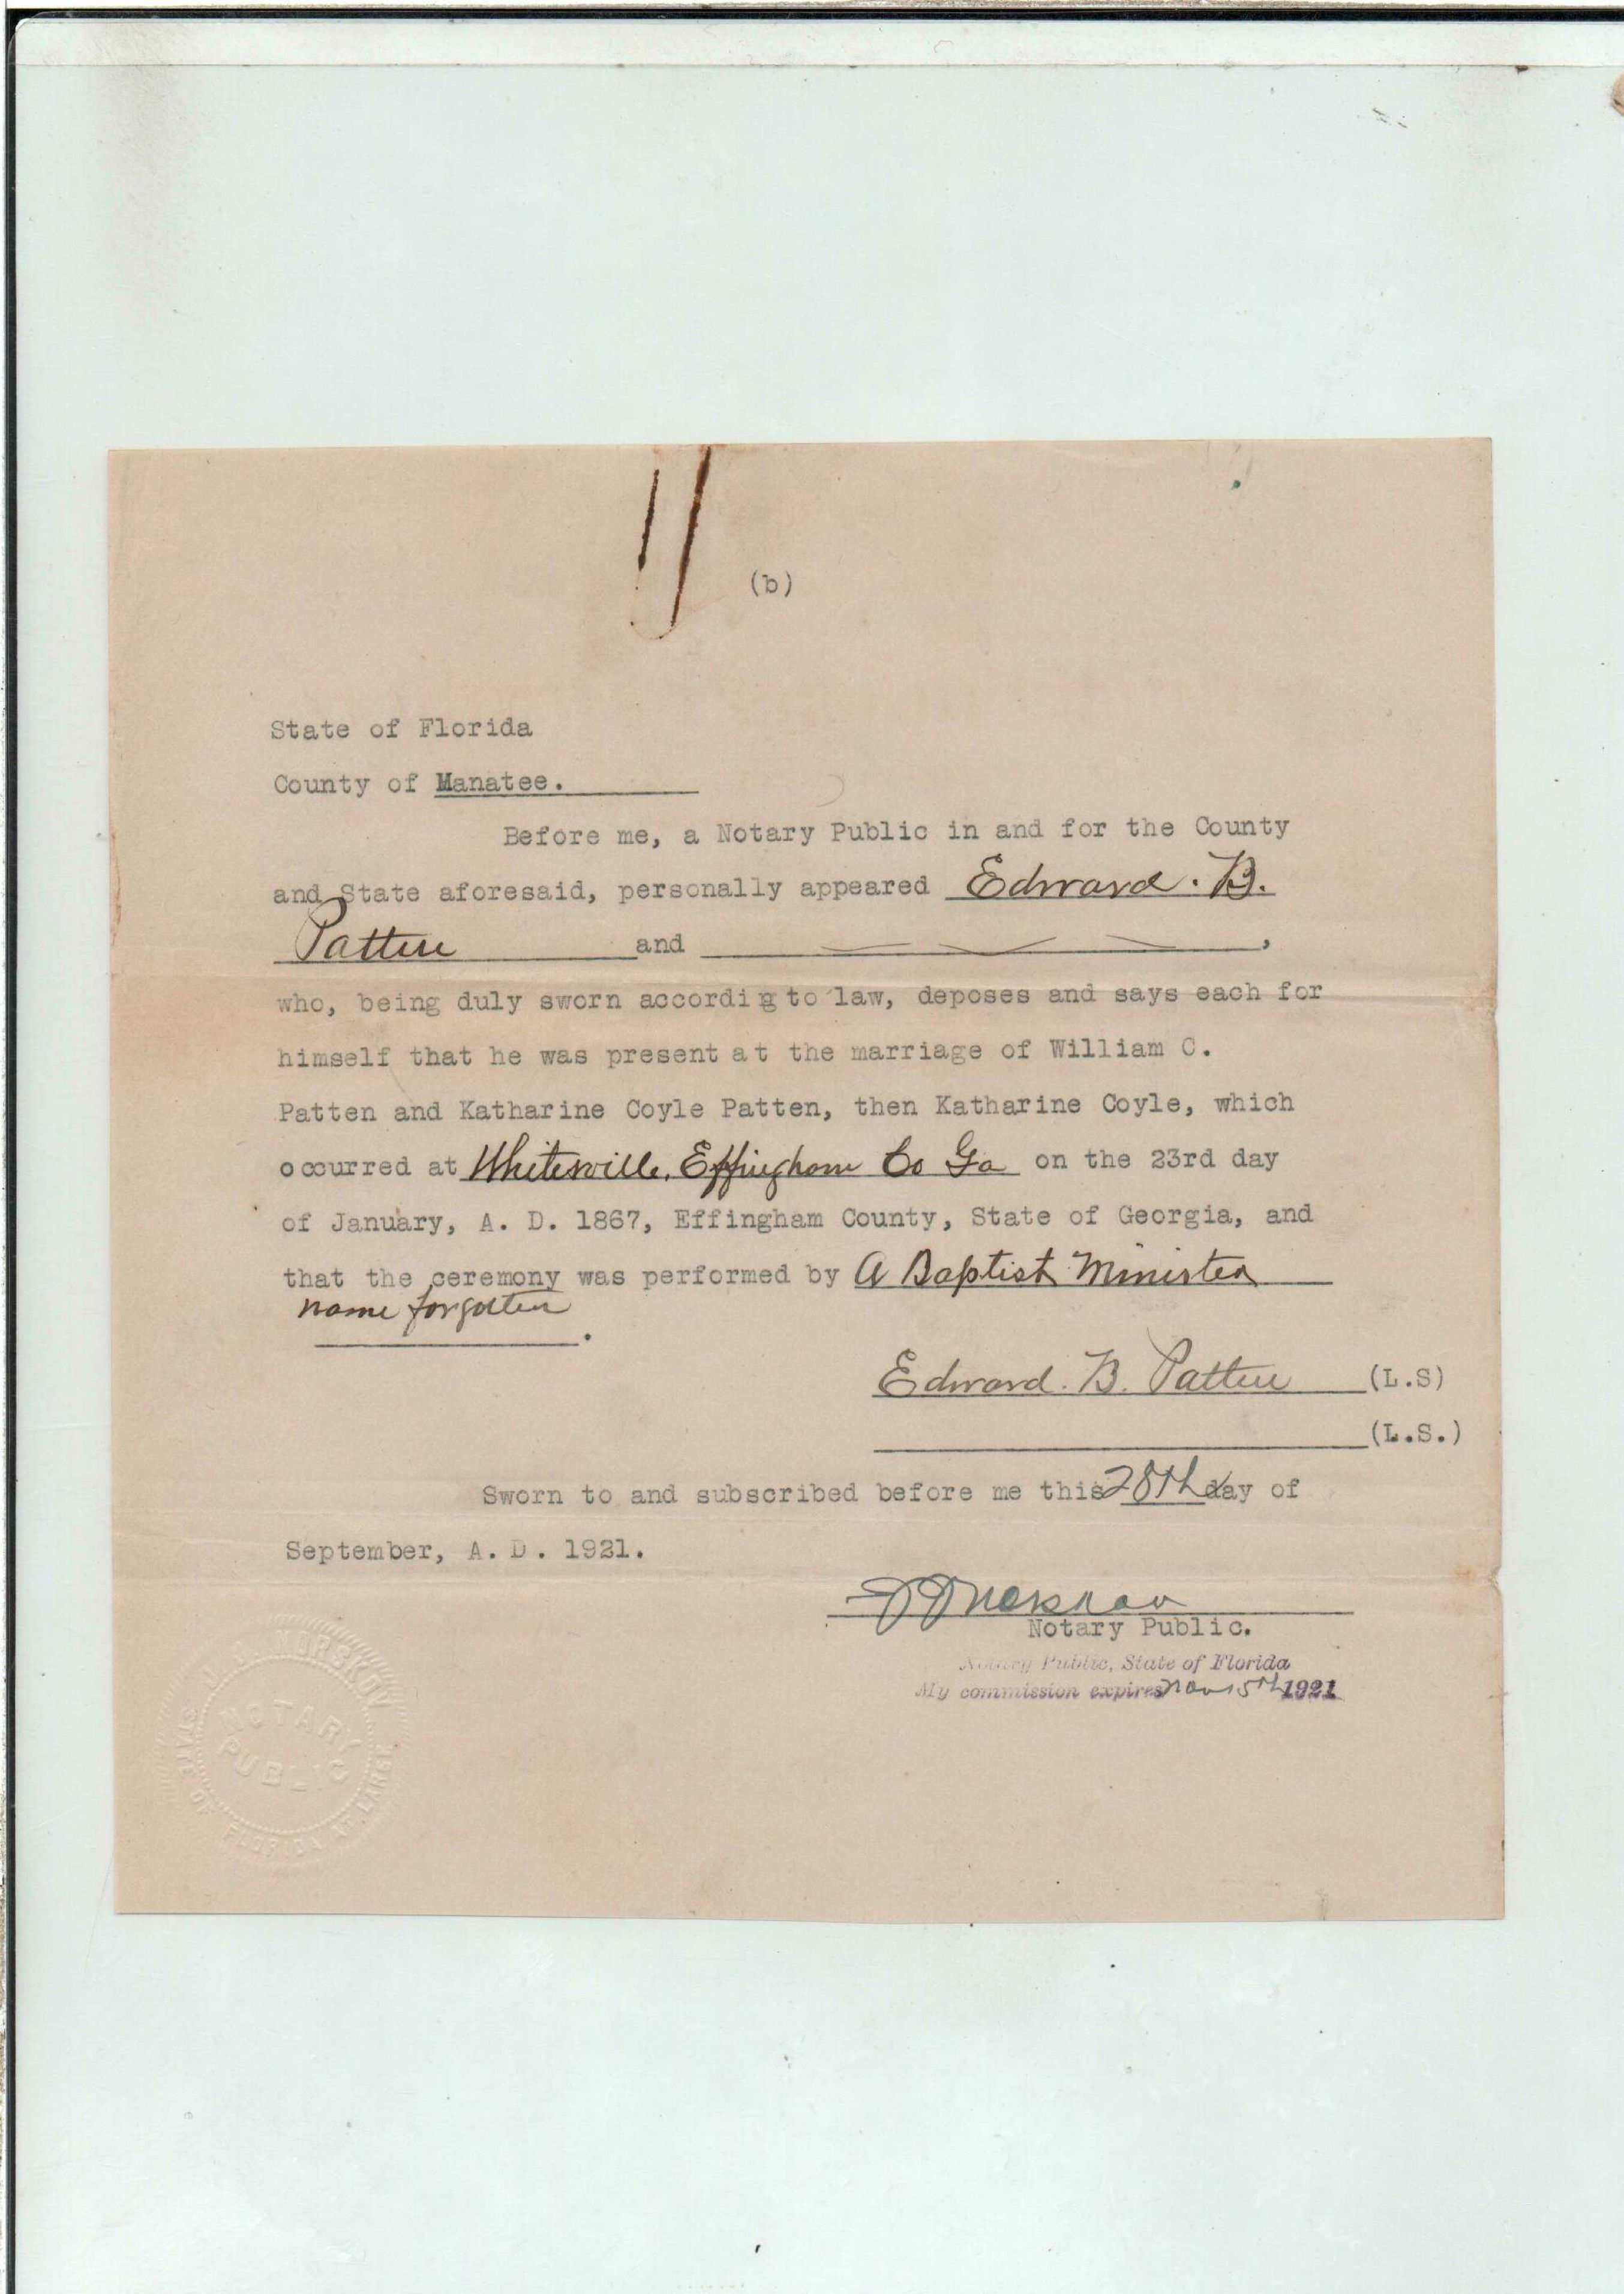 (b)
State of Florida
County of Manatee.
Before me, a Notary Public in and for the County
and State aforesaid, personally appeared Edward. B.
Patten and ,
who, being duly sworn accordig to law, deposes and says each for
himself that he was present at the marriage of William C.
Patten and Katharine Coyle Patten, then Katharine Coyle, which
occurred at Whitesville, Effingham Co Ga on the 23rd day
of January, A. D. 1867, Effingham County, State of Georgia, and
that the ceremony was performed by A Baptist Minister
name forgotten .
Edward. B. Patten (L.S)
(L.S.)
Sworn to and subscribed before me this 28th day of
September, A. D. 1921.
Notary Public.
Notary Public, State of Florida
My commission expires Nov 15th 1921
J. J. NORSKOV
NOTARY
PUBLIC
STATE OF FLORIDA AT LARGE